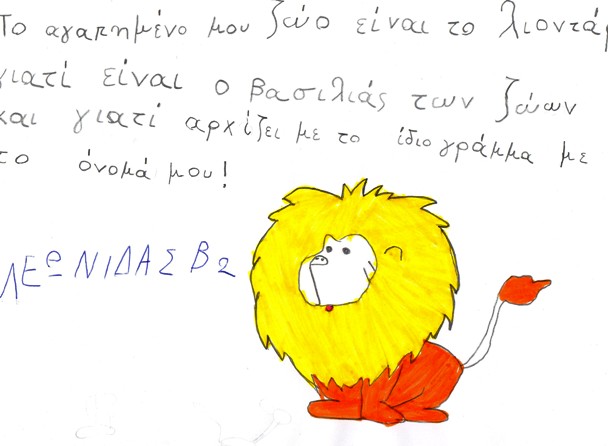 Το αγαπημένο μου ζώο είναι το λιοντάρ
γιατί είναι ο βασιλιάς των ζώων
και γιατί αρχίζει με το ίδιο γράμμα με
το όνομά μου!
ΛΕΩΝΙΔΑΣ Β2